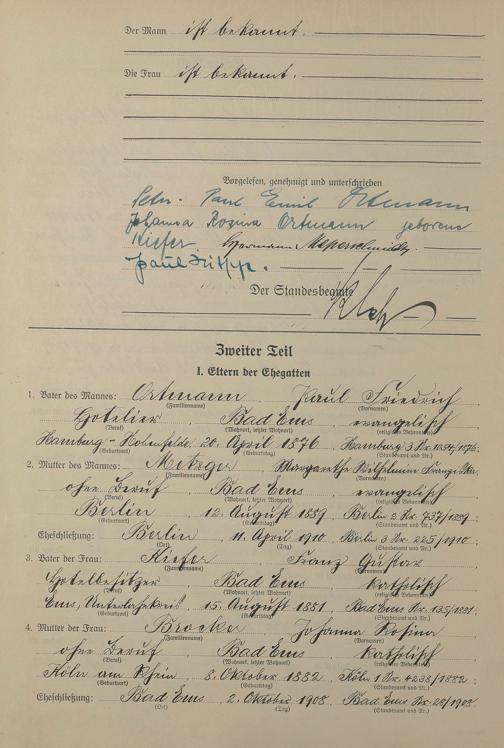 Der Mann ist bekannt.
Die Frau ist bekannt.
Vorgelesen, genehmigt und unterschrieben
Petr. Paul Emil Ortmann
Johanna Rosina Ortmann geborene
Kiefer. Hermann Messerschmidt.
Paul
Der Standesbeamte
Zweiter Teil
I. Eltern der Ehegatten
1. Vater des Mannes: Ortmann Paul Friedrich
(Familienname) (Vornamen)
Hotelier Bad Ems evangelisch
(Beruf) (Wohnort, letzter Wohnort)
Hamburg-Hohenfelde 20. April 1876 Hamburg 3 Nr. 1034/1876;
(Geburtsort) (Geburtstag) (Standesamt und Nr.)
2. Mutter des Mannes: Metzger Margarethe Wilhelmine Franziska
(Familienname) (Vornamen)
ohne Beruf Bad Ems evangelisch
(Beruf) (Wohnort, letzter Wohnort)
Berlin 12. August 1889 Berlin 2 Nr. 737/1889;
(Geburtsort) (Geburtstag) (Standesamt und Nr.)
Eheschließung: Berlin 11. April 1910 Berlin 3 Nr. 225/1910;
(Ort) (Tag) (Standesamt und Nr.)
3. Vater der Frau: Kiefer Franz Gustav
(Familienname) (Vornamen)
Hotelbesitzer Bad Ems katholisch
(Beruf) (Wohnort, letzter Wohnort)
Ems, Unterlahnkreis 15. August 1881 Bad Ems Nr. 135/1881;
(Geburtsort) (Geburtstag) (Standesamt und Nr.)
4. Mutter der Frau: Brocker Johanna Rosina
(Familienname) (Vornamen)
ohne Beruf Bad Ems katholisch
(Beruf) (Wohnort, letzter Wohnort)
Köln am Rhein 8. Oktober 1882 Köln 1 Nr. 4238/1882;
(Geburtsort) (Geburtstag) (Standesamt und Nr.)
Eheschließung: Bad Ems 2. Oktober 1908 Bad Ems Nr. 28/1908
(Ort) (Tag) (Standesamt und Nr.)